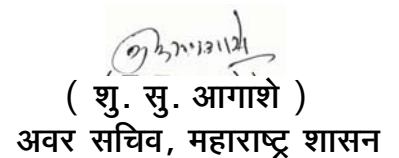 ( शु. सु. आगाशे )
अवर सचिव, महाराष्ट्र शासन